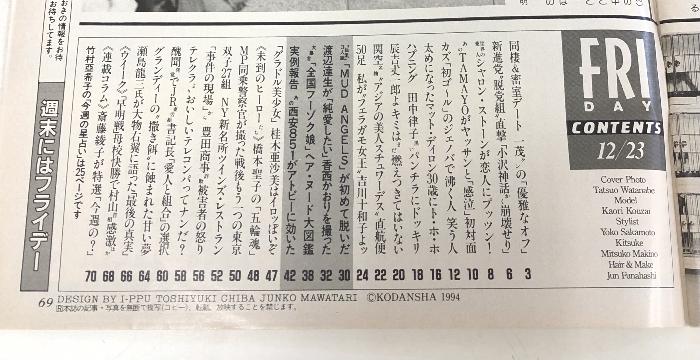 FRI
DAY
CONTENTS
12/23
Cover Photo
Tatsuo Watanabe
Model
Kaori Kouzai
Stylist
Yoko Sakamoto
Kitsuke
Mitsuko Makino
Hair & Make
Jun Panahashi
同棲&密室デート 「茂」の“優雅なオフ” 3
新進党“脱党組”直撃「小沢神話」崩壊せり 6
シャロン・ストーンが恋人にプッツン! 8
TAMAYOがヤッサンと“感泣”初対面 10
カズ「初ゴール」のジェノバで沸く人 笑う人 12
太めになったマット・ディロン30歳にト・ホ・ホ 14
ハプニング 田中律子“パンチラ”にドッキリ 16
辰吉丈一郎よキミは“燃えつきて”はいない 18
関空“アジアの美人スチュワーデス”直航便 20
50足 私がフェラガモ女王“吉川十和子よっ 22
「MUD ANGELS」が初めて脱いだ 24
渡辺達生が“純愛したい”香西かおりを撮った 30
“全国フーゾク娘”ヘア・ヌード大図鑑 32
実例報告 “西葵851”がアトピーに効いた 38
「グラドル美少女」桂木亜沙美はイロッぽいぞ 42
《未到のヒーロー》橋本聖子の「五輪魂」 47
MP同乗警察官が撮った戦後もう一つの東京 48
双子27組 NY新名所ツインズ・レストラン 50
「事件の現場」 “豊田商事”被害者の怒り 52
テレクラよりおいしいテレコンパってナンだ? 56
醜聞“JR”書記長、愛人と組合の選択 58
グランディーの「撒き餌」に蝕まれた甘い夢 60
瀬島龍三氏が大物右翼に語った「最後の真実」 64
《ウイーク》「早明戦母校快勝で村山“感激”」 66
《連載コラム》斎藤綾子が特選「今週の?」 68
竹村亜希子の今週の星占いは25ページです 70
週末にはフライデー
おきの情報をお待
お待ちしてます。
69 DESIGN BY I-PPU TOSHIYUKI CHIBA JUNKO MAWATARI ©KODANSHA 1994
本誌の記事・写真を無断で複写(コピー)、転載、放映することを禁じます。